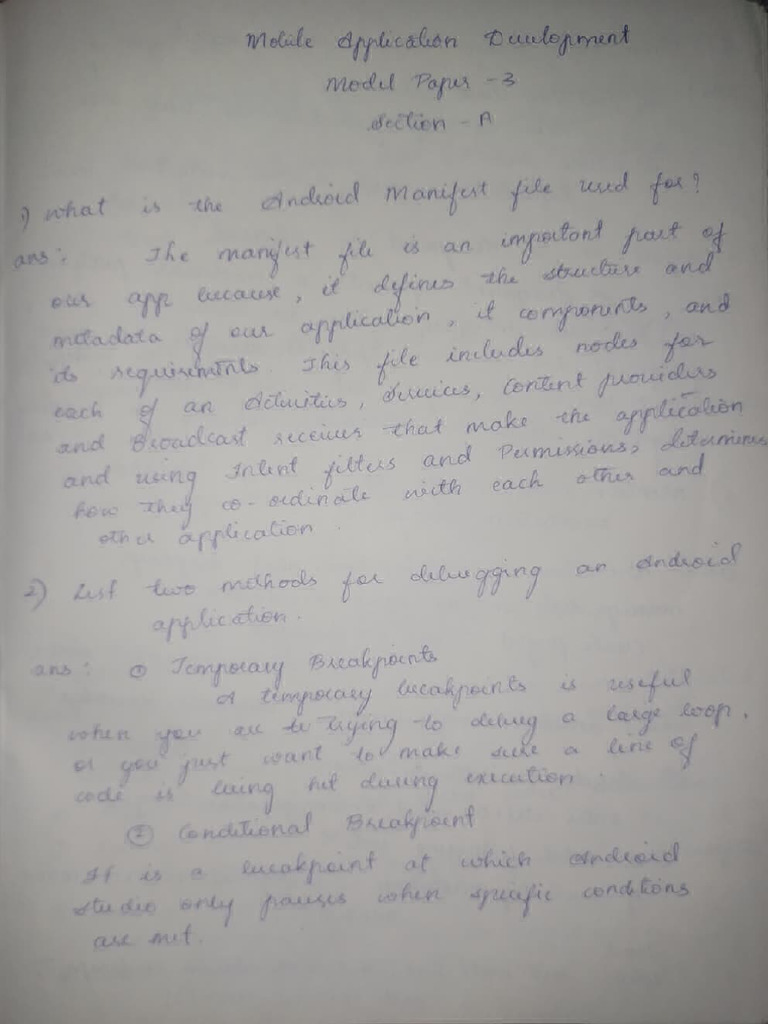 Mobile Application Development
Model Paper - 3
Section - A
1) What is the Android Manifest file used for?
ans: The manifest file is an important part of
our app because, it defines the structure and
metadata of our application, it components, and
its requirements. This file includes nodes for
each of an Activities, Services, Content providers
and Broadcast receiver that make the application
and using Intent filters and Permissions, determines
how they co-ordinate with each other and
other application.
2) List two methods for debugging an Android
application.
ans: ① Temporary Breakpoints
A temporary breakpoints is useful
when you are to trying to debug a large loop.
or you just want to make sure a line of
code is being hit during execution.
② Conditional Breakpoint
It is a breakpoint at which Android
studio only pauses when specific conditions
are met.